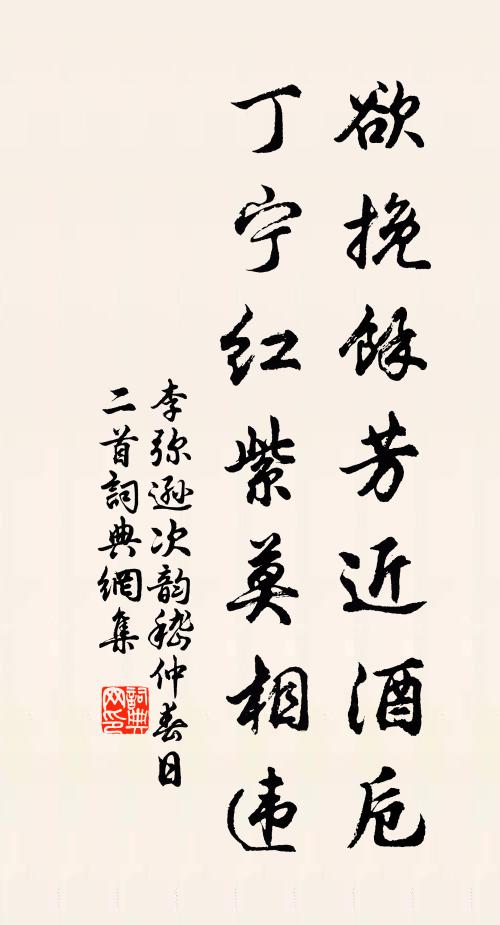 欲挽餘芳近酒卮
丁宁红紫莫相违
李弥逊次韵嵇仲春日
二首詞典網集
詞典网印